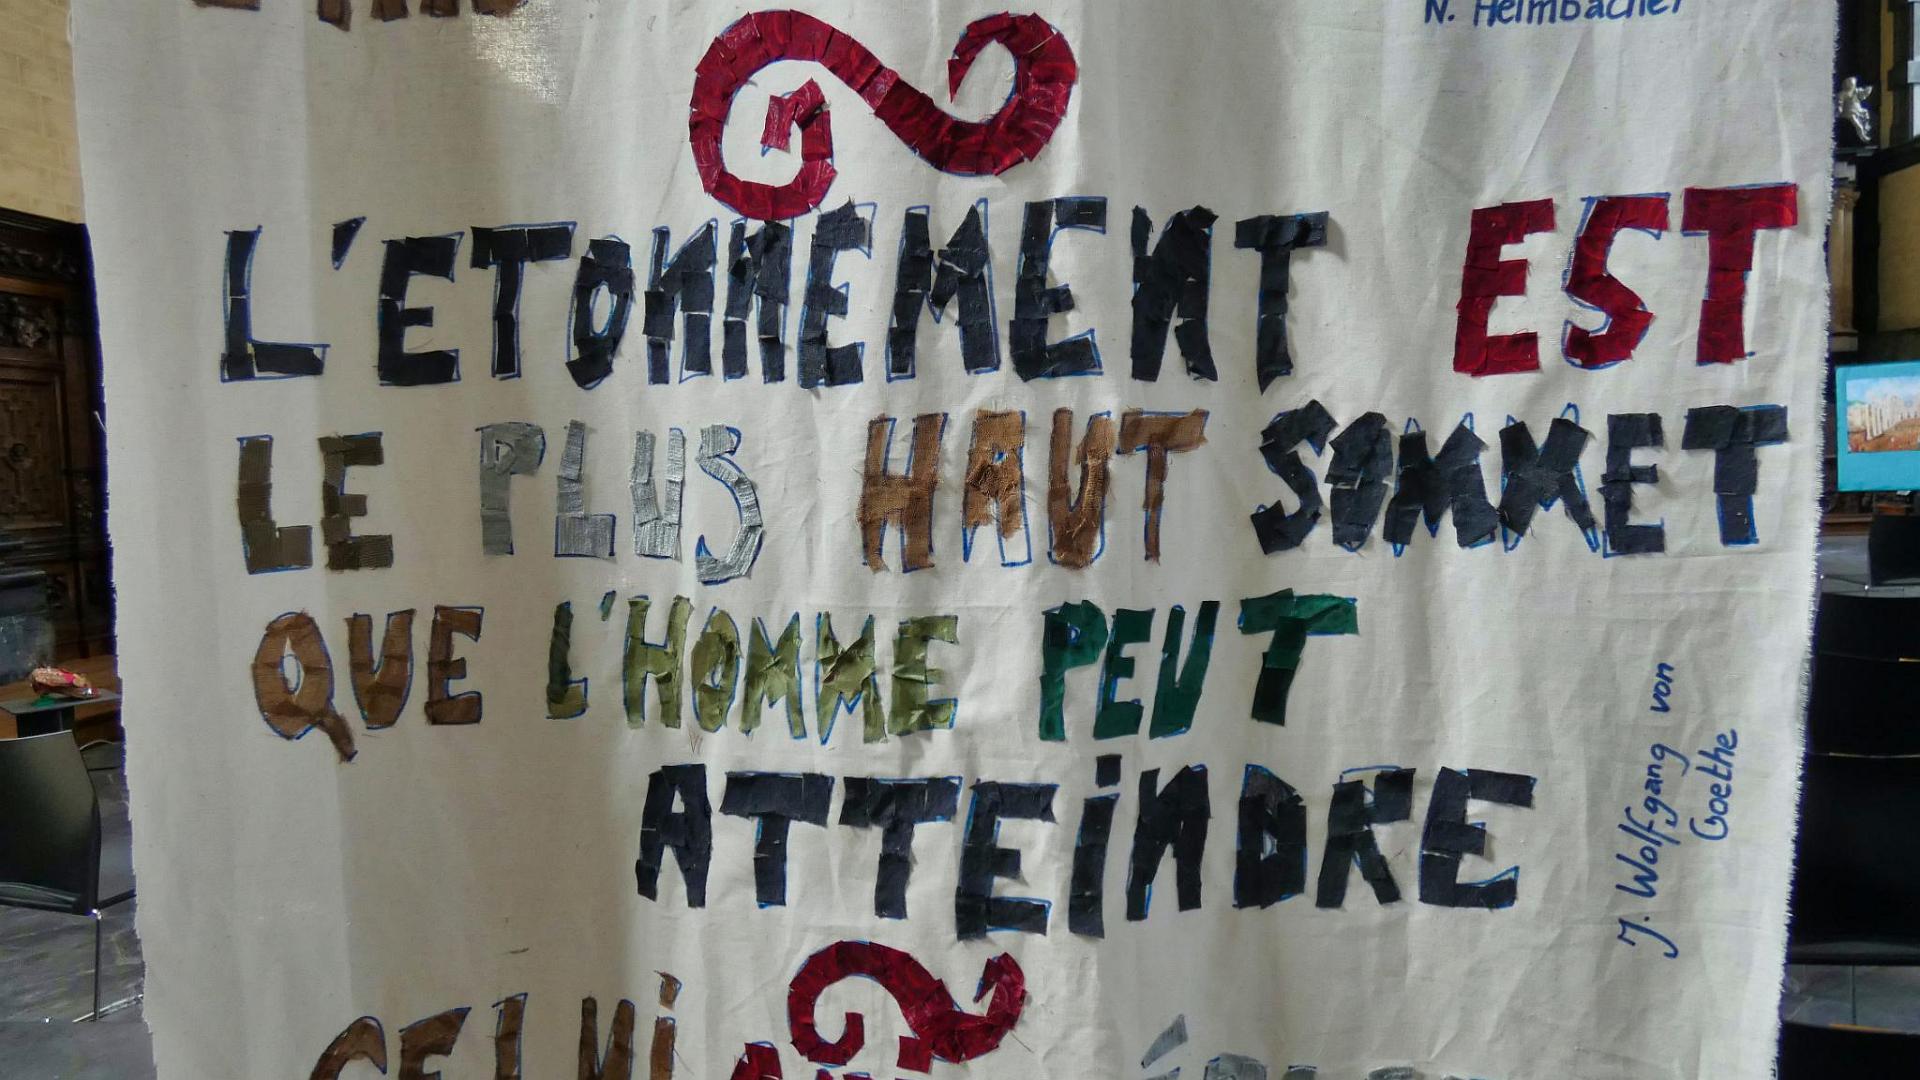 N. Heimbacher
L'ETONNEMENT EST
LE PLUS HAUT SOMMET
QUE L'HOMME PEUT
ATTEiNDRE
J. Wolfgang von
Goethe
CELUi